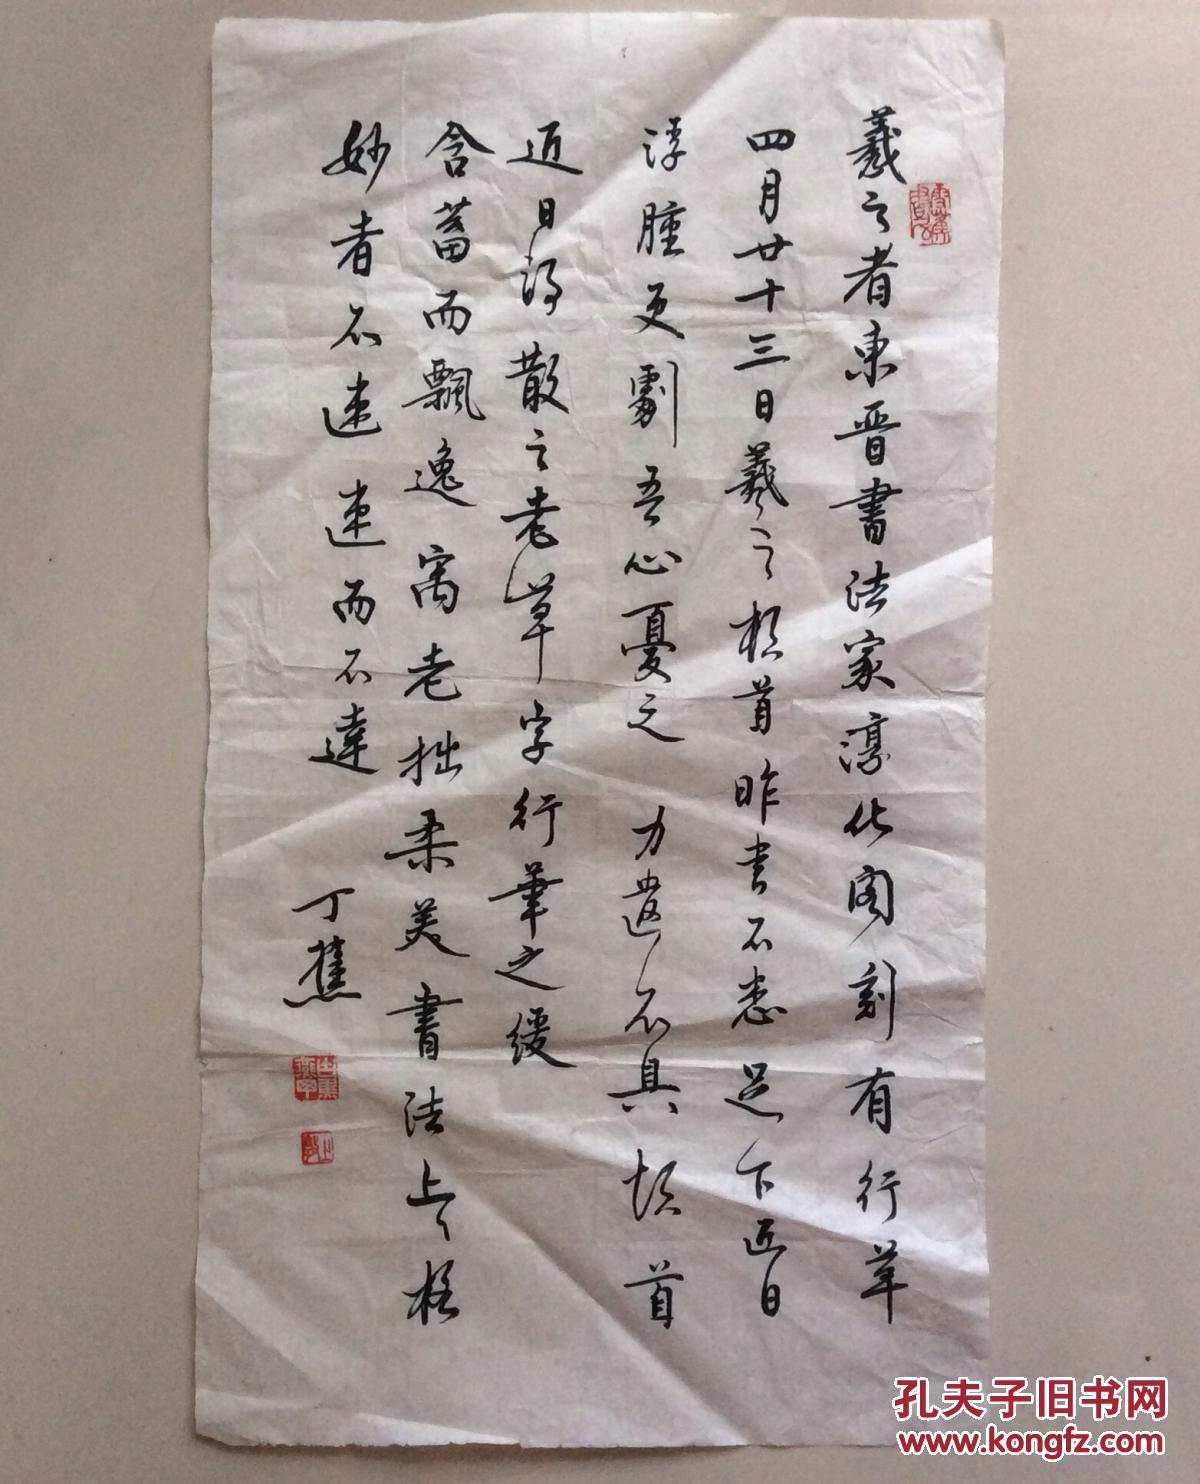 羲之者東晋書法家淳化阁刻有行草
四月廿十三日羲之頓首昨书不悉足下近日
浮腫更劇吾心憂之 力遣不具頓首
近日得散之老草字行筆之緩
含蓄而飄逸寓老拙柔美書法上々格
妙者不速速而不達
丁蕉
孔夫子旧书网
www.kongfz.com